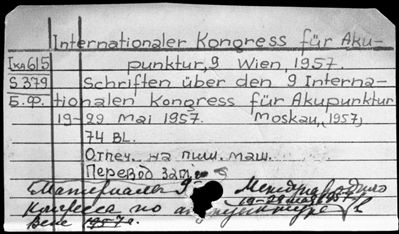 Internationaler Kongress für Aku-
Iка615 punktur, 9 Wien, 1957.
S 379 Schriften über den 9 Interna-
Б.Ф. tionalen Kongress für Akupunktur
19-29 Mai 1957 Moskau, (1957)
74 BL.
Отпеч. на пиш. маш.
Перевод
Материалы 9 Международного
конгресса по акупунктуре
Вене 1957г.